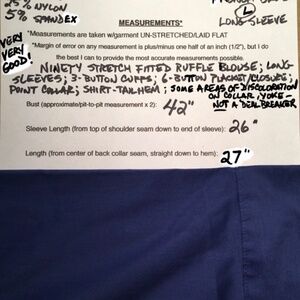 25% NYLON
5% SPANDEX
L
LONG SLEEVE
VERY VERY GOOD!
MEASUREMENTS*
*Measurements are taken w/garment UN-STRETCHED/LAID FLAT
*Margin of error on any measurement is plus/minus one half of an inch (1/2"), but i do
the best I can to provide the most accurate measurements possible.
NINETY STRETCH FITTED RUFFLE BLOUSE; LONG-
SLEEVES; 3-BUTTON CUFFS; 6-BUTTON PLACKET/CLOSURE;
POINT COLLAR; SHIRT-TAIL HEM; SOME AREAS OF DISCOLORATION
ON COLLAR, YOKE -
NOT A DEAL BREAKER
Bust (approximate/pit-to-pit measurement x 2): 42"
Sleeve Length (from top of shoulder seam down to end of sleeve): 26"
Length (from center of back collar seam, straight down to hem): 27"